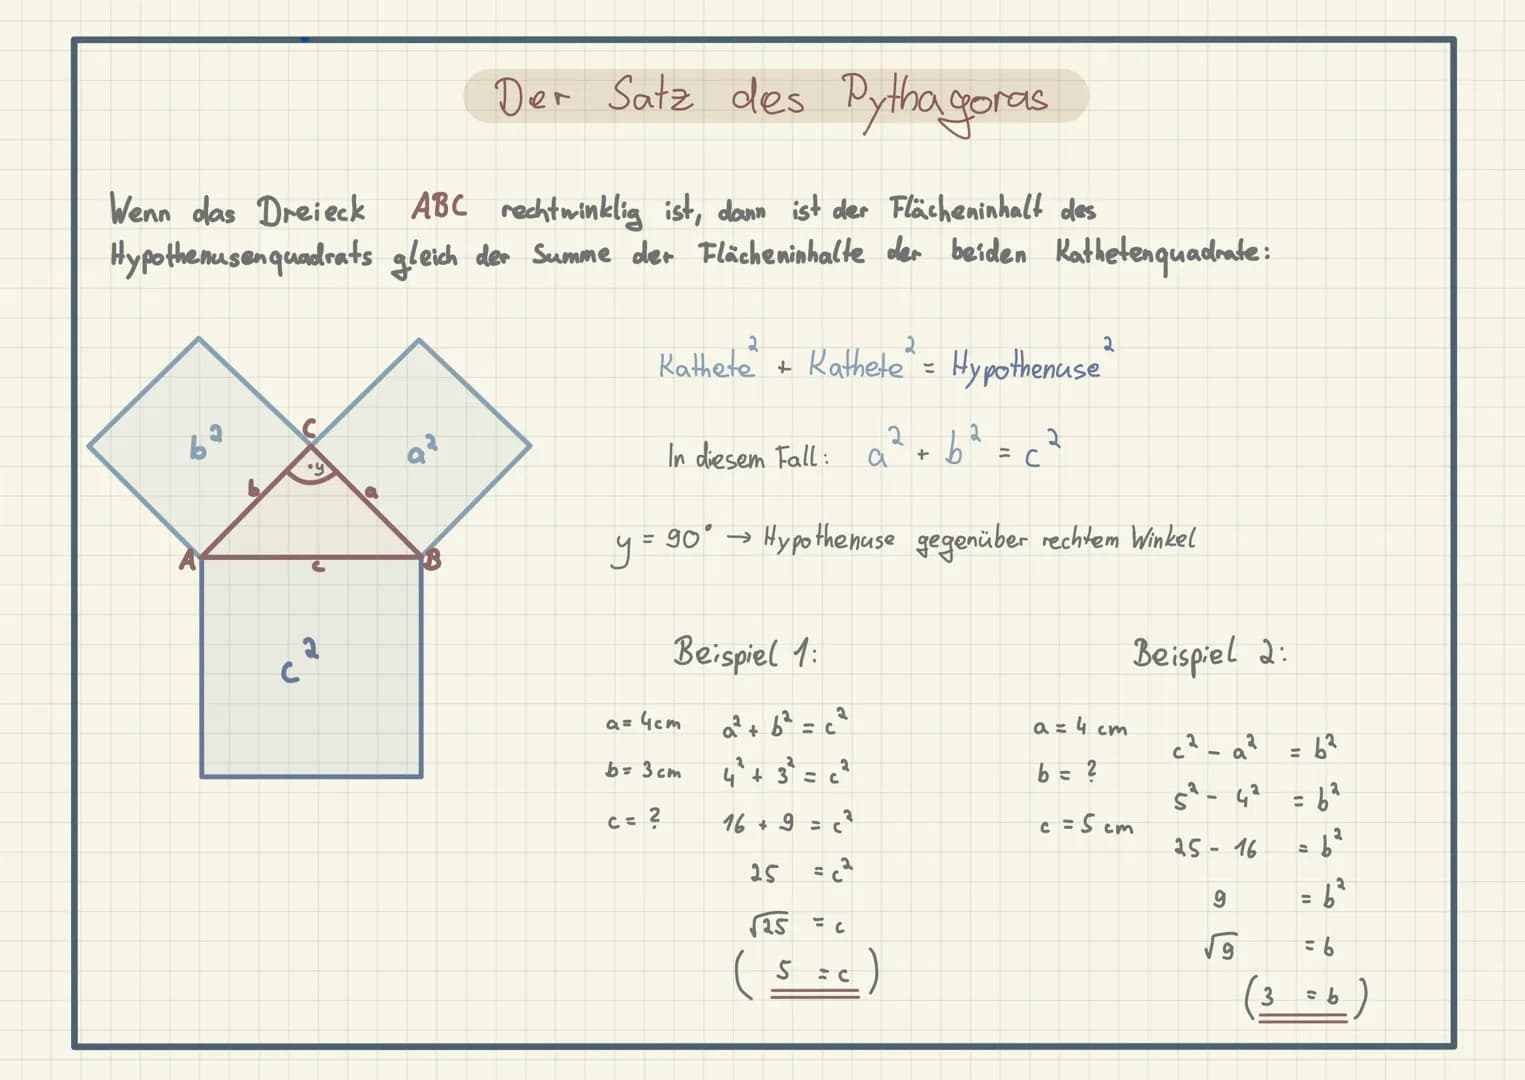 Der Satz des Pythagoras
Wenn das Dreieck ABC rechtwinklig ist, dann ist der Flächeninhalt des
Hypothenusenquadrats gleich der Summe der Flächeninhalte der beiden Kathetenquadrate:
b²
a²
C
y
b
a
A
c
B
c²
Kathete² + Kathete² = Hypothenuse²
In diesem Fall: a² + b² = c²
y = 90° → Hypothenuse gegenüber rechtem Winkel
Beispiel 1:
a = 4cm
b = 3cm
c = ?
a² + b² = c²
4² + 3² = c²
16 + 9 = c²
25 = c²
√25 = c
( 5 = c )
Beispiel 2:
a = 4 cm
b = ?
c = 5 cm
c² - a² = b²
5² - 4² = b²
25 - 16 = b²
9 = b²
√9 = b
( 3 = b )